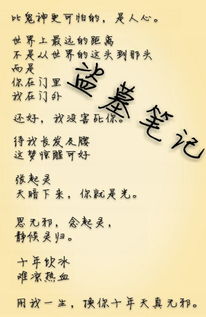 比鬼神更可怕的，是人心。
世界上最远的距离
不是从世界的这头到那头
而是
你在门里
我在门外
还好，我没害死你。
待我长发及腰
这梦惊醒可好
张起灵
天暗下来，你就是光。
思无邪，念起灵，
静候灵归。
十年饮冰
难凉热血
用我一生，换你十年天真无邪。
盗墓笔记